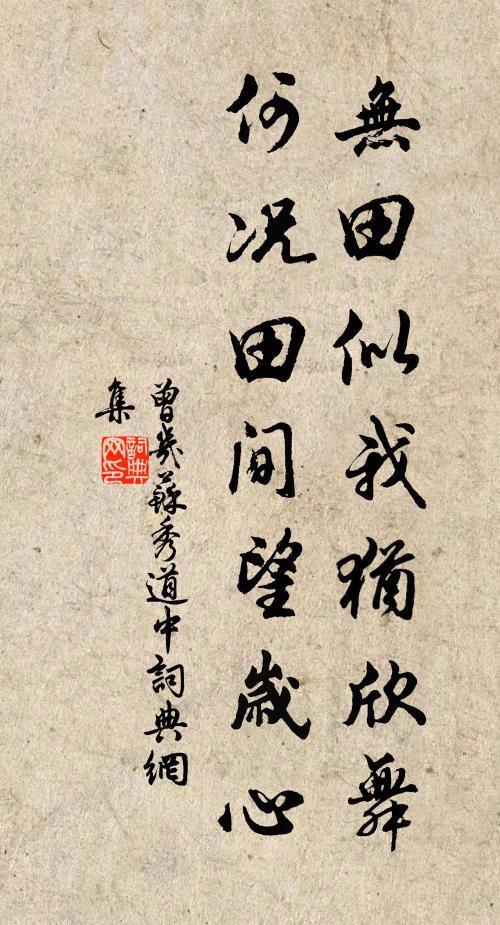 無田似我猶欣舞
何况田間望歲心
曾幾蘇秀道中詞典網
集
詞典
网印